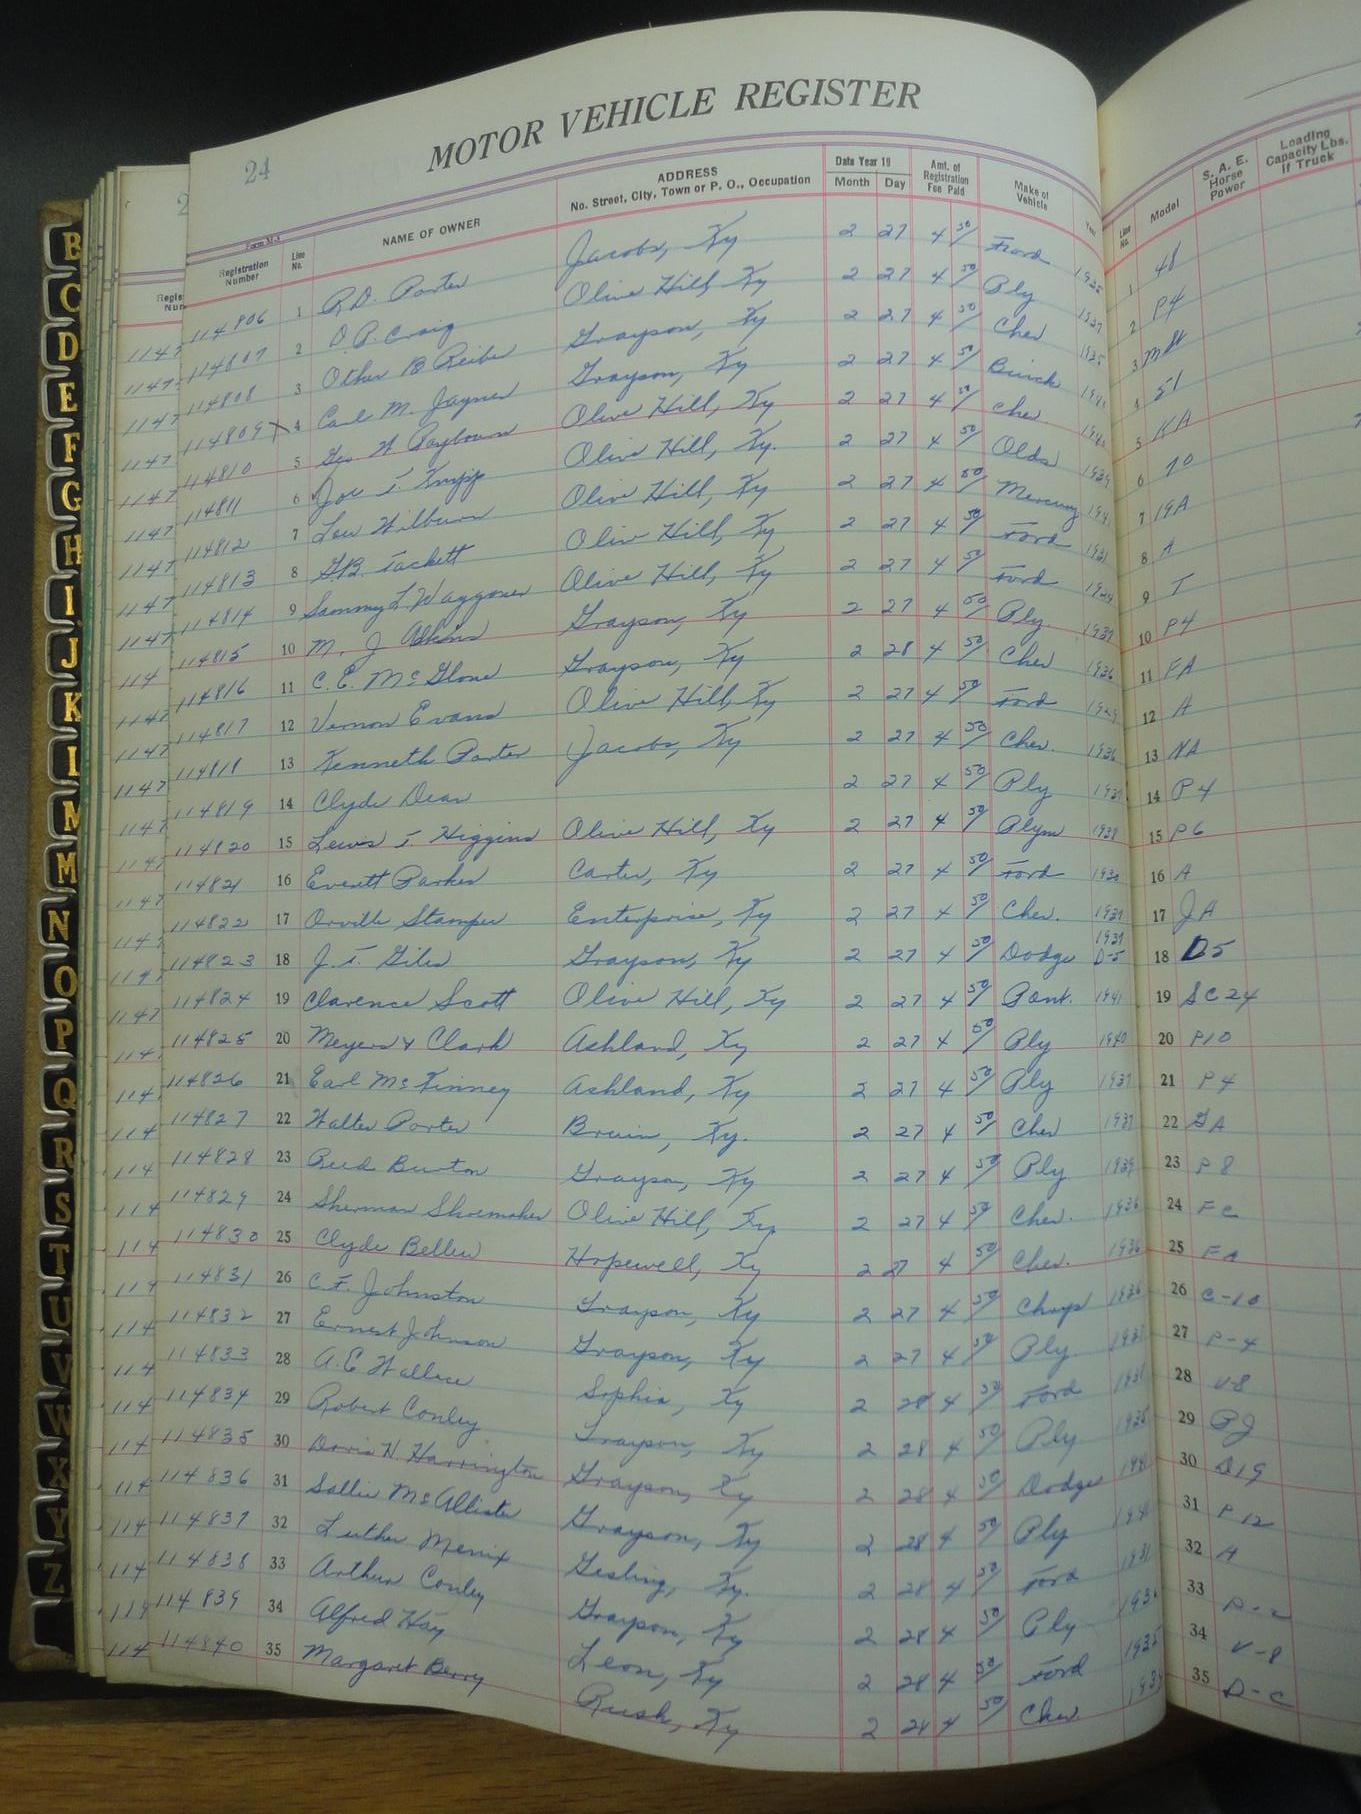 24
MOTOR VEHICLE REGISTER
Registration Number Line No. NAME OF OWNER ADDRESS No. Street, City, Town or P. O., Occupation Date Year 19 Month Day Amt. of Registration Fee Paid Make of Vehicle Line No. Model S. A. E. Horse Power Loading Capacity Lbs. If Truck
114806 1 R.D. Porter Jacobs, Ky 2 27 4 50 Ford 1935 1 48
114807 2 O.P. Craig Olive Hill, Ky 2 27 4 50 Ply 1937 2 P4
114808 3 Other B Grayson, Ky 2 27 4 50 Chev 1935 3
114809 4 Carl M. Grayson, Ky 2 27 4 50 Buick 4 51
114810 5 Geo W Olive Hill, Ky 2 27 4 50 Chev. 5 KA
114811 6 Joe T. Knipp Olive Hill, Ky. 2 27 4 50 Olds 1939 6 70
114812 7 Lou Wilburn Olive Hill, Ky 2 27 4 50 Mercury 1941 7 19A
114813 8 G.B. Tackett Olive Hill, Ky 2 27 4 50 Ford 1931 8 A
114814 9 Sammy L Waggoner Olive Hill, Ky 2 27 4 50 Ford 9 T
114815 10 M. J Adkins Grayson, Ky 2 27 4 50 Ply. 1937 10 P4
114816 11 C.E. McGlone Grayson, Ky 2 28 4 50 Chev 1936 11 FA
114817 12 Vernon Evans Olive Hill, Ky 2 27 4 50 Ford 1929 12 A
114818 13 Kenneth Porter Jacobs, Ky 2 27 4 50 Chev. 1938 13
114819 14 Clyde Dean 2 27 4 50 Ply 1937 14 P4
114820 15 Lewis T. Higgins Olive Hill, Ky 2 27 4 50 Plym 1938 15 P6
114821 16 Everett Parker Carter, Ky 2 27 4 50 Ford 1930 16 A
114822 17 Orville Stamper Enterprise, Ky 2 27 4 50 Chev. 1939 17 JA
114823 18 J.T. Giles Grayson, Ky 2 27 4 50 Dodge 1937 D-5 18 D5
114824 19 Clarence Scott Olive Hill, Ky 2 27 4 50 Pont. 1941 19 SC 24
114825 20 Meyers & Clark Ashland, Ky 2 27 4 50 Ply 1940 20 P10
114826 21 Earl McKinney Ashland, Ky 2 27 4 50 Ply 1937 21 P4
114827 22 Walter Porter Bruin, Ky. 2 27 4 50 Chev 1937 22 GA
114828 23 Burton Grayson, Ky 2 27 4 50 Ply 1939 23 P8
114829 24 Sherman Shoemaker Olive Hill, Ky. 2 27 4 50 Chev. 1936 24 FC
114830 25 Clyde Bellew Hopewell, Ky 2 27 4 50 Chev. 1936 25 FA
114831 26 C.F. Johnston Grayson, Ky 2 27 4 50 Chrys 1936 26 C-10
114832 27 Ernest Johnson Grayson, Ky 2 27 4 50 Ply 1937 27 P-4
114833 28 A.C Wallace Sophia, Ky 2 28 4 50 Ford 28 V-8
114834 29 Robert Conley Grayson, Ky 2 28 4 50 Ply 1935 29 PJ
114835 30 Doris N. Harrington Grayson, Ky 2 28 4 50 Dodge 1941 30 D19
114836 31 Sallie McAllister Grayson, Ky 2 28 4 50 Ply 1941 31 P 12
114837 32 Luther Menix Gesling, Ky. 2 28 4 50 Ford 1931 32 A
114838 33 Arthur Conley Grayson, Ky 2 28 4 50 Ply 33
114839 34 Alfred Hay Leon, Ky 2 28 4 50 Ford 1935 34 V-8
114840 35 Margaret Berry Rush, Ky 2 28 4 50 Chev 35
B
C
D
E
F
G
H
I
J
K
L
M
M
N
O
P
Q
R
S
T
U
V
W
X
Y
Z